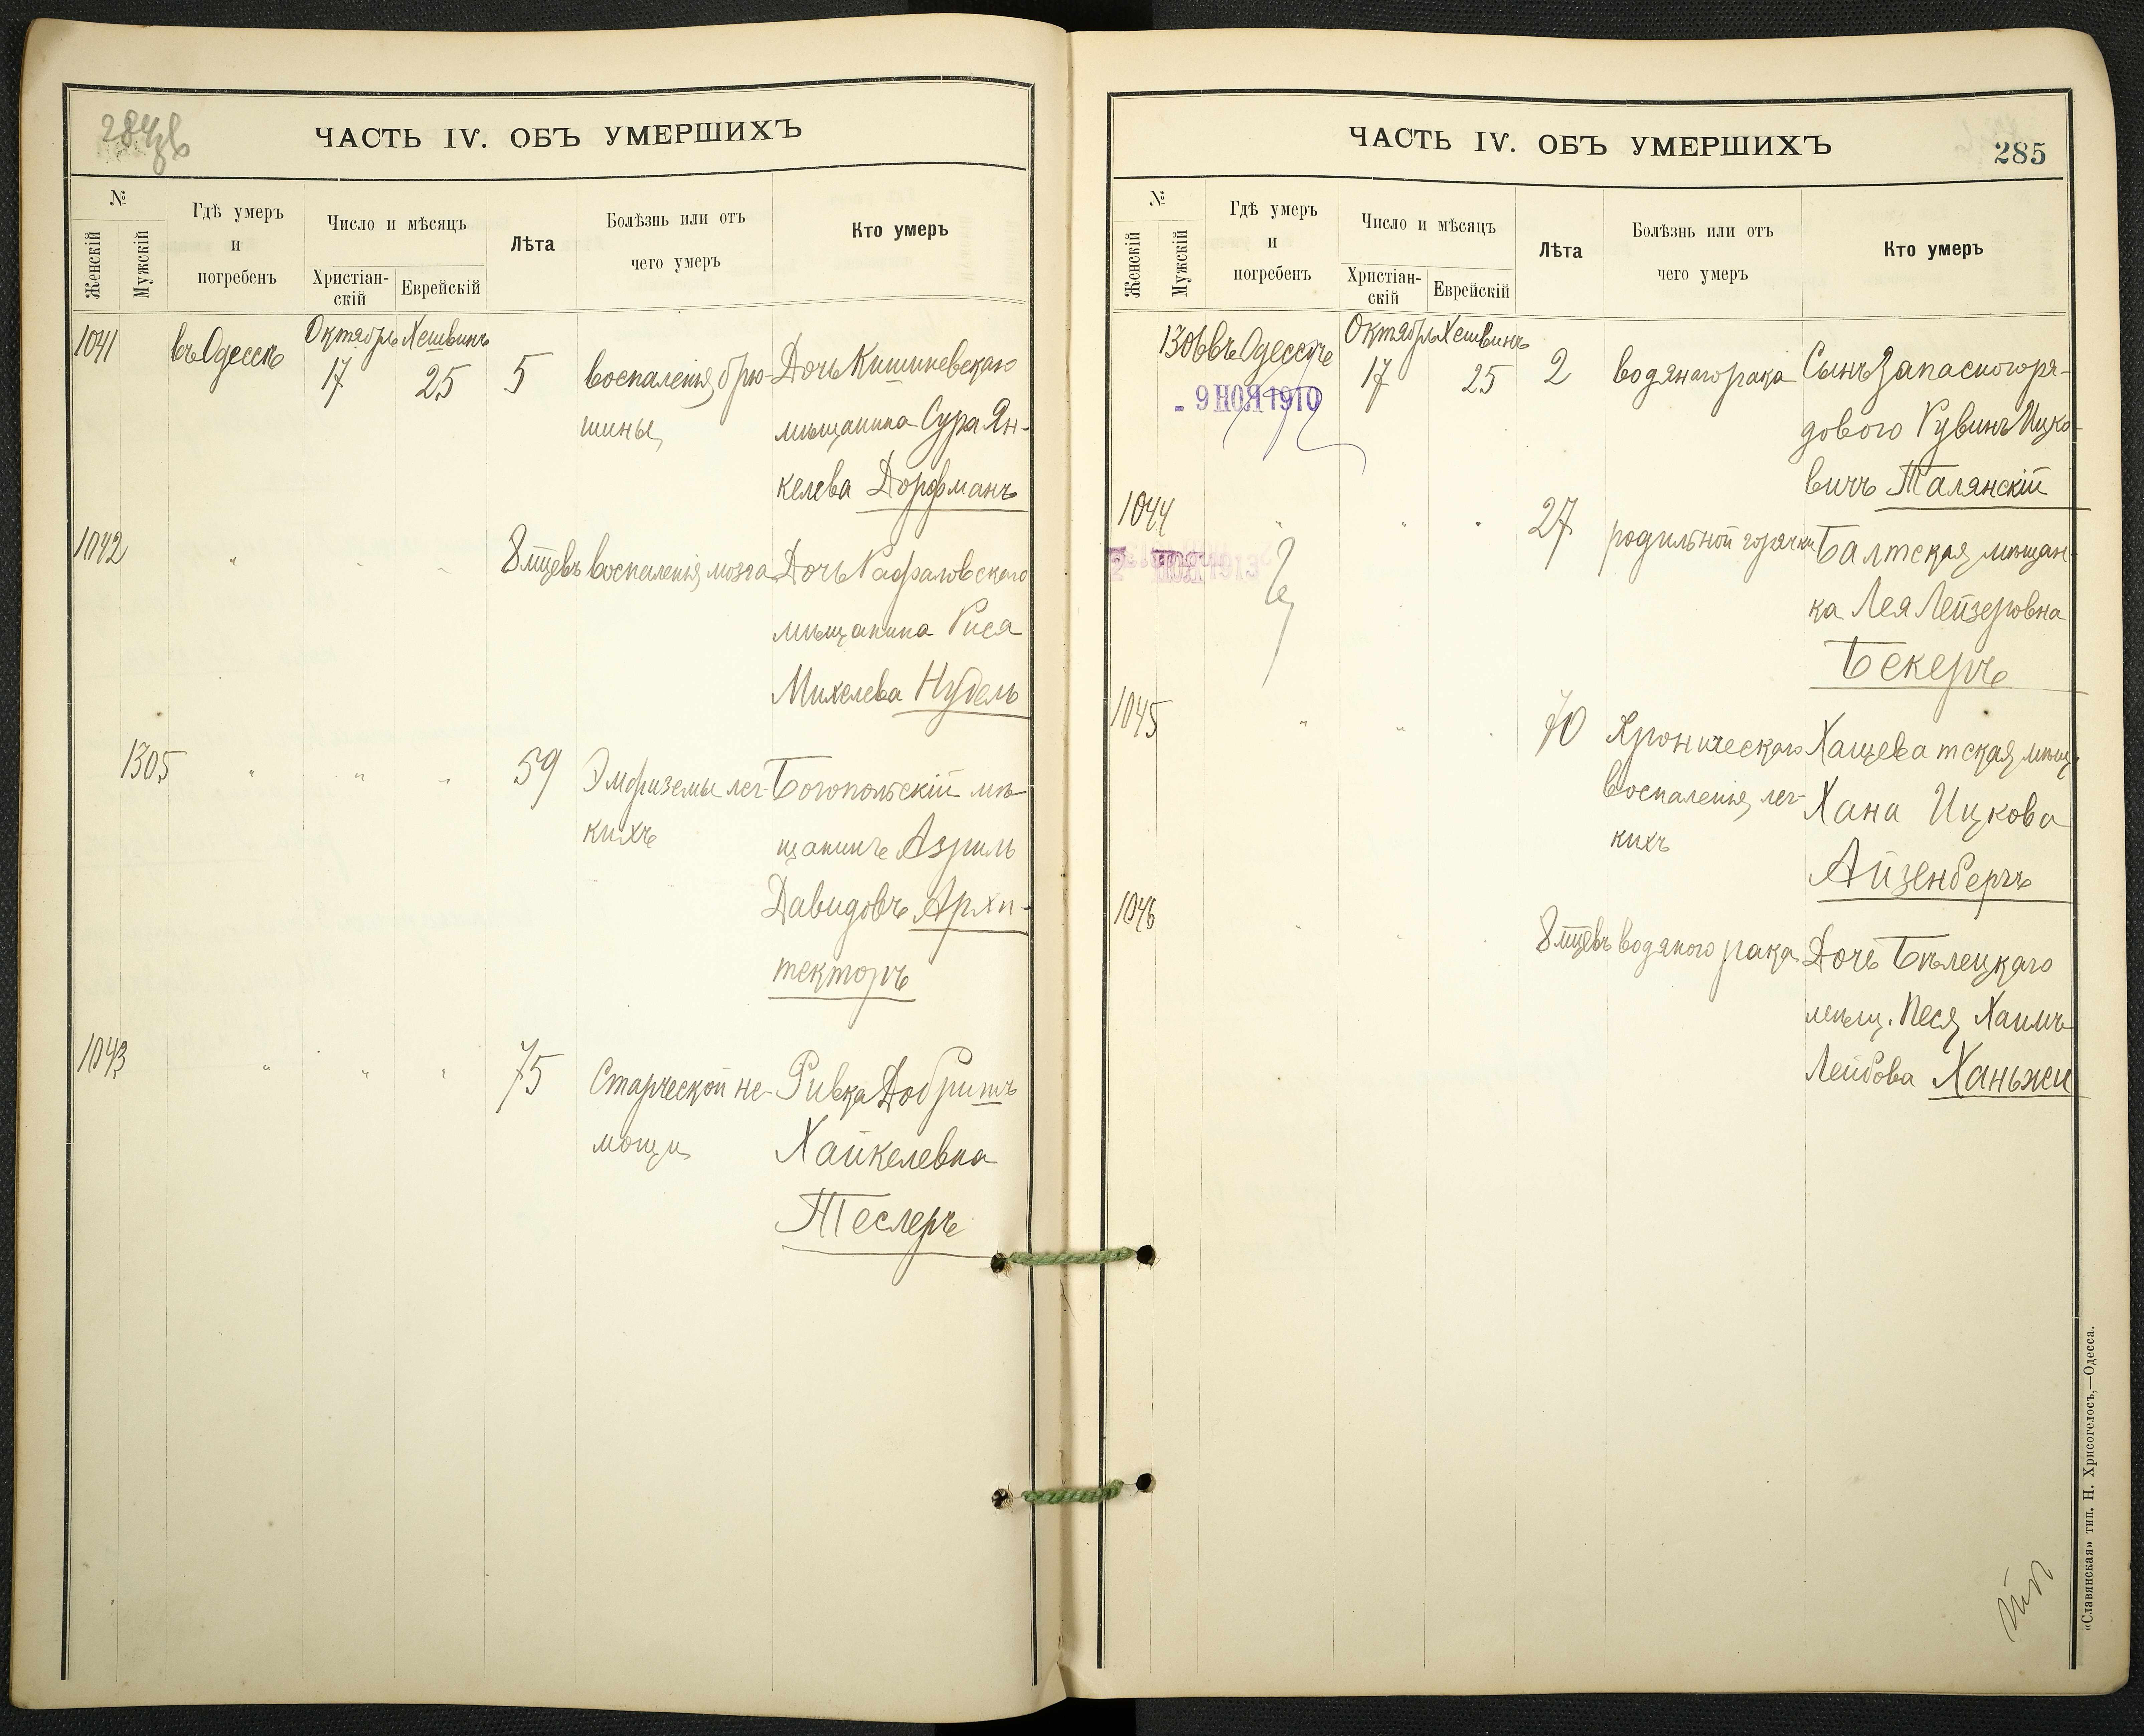 284 об
ЧАСТЬ IV. ОБЪ УМЕРШИХЪ
№
Женскій
Мужскій
Гдѣ умеръ
и
погребенъ
Число и мѣсяцъ
Христіан-
скій
Еврейскій
Лѣта
Болѣзнь или отъ
чего умеръ
Кто умеръ
1041 въ Одессѣ Октябрь Хешвинъ
17 25 5 воспаленія брю- Дочь Кишиневскаго
шины мѣщанина Сура Ян-
келева Дорфманъ
1042 " " " 8 мцевъ воспаленія мозга Дочь Рафаловскаго
мѣщанина Рися
Михелева Нудель
1305 " " " 59 Эмфиземы лег- Богопольскій мѣ-
кихъ щанинъ Азриль
Давидовъ Архи-
текторъ
1043 " " " 75 Старческой не- Ривка Добришъ
мощи Хайкелевна
Теслеръ
ЧАСТЬ IV. ОБЪ УМЕРШИХЪ
285
№
Женскій
Мужскій
Гдѣ умеръ
и
погребенъ
Число и мѣсяцъ
Христіан-
скій
Еврейскій
Лѣта
Болѣзнь или отъ
чего умеръ
Кто умеръ
1306 въ Одессѣ Октябрь Хешвинъ
17 25 2 водяного рака Сынъ Запасного ря-
- 9 НОЯ 1910
дового Рувинъ Ицко-
вичъ Талянскій
1044 " " " 27 родильной горячки Балтская мѣщан-
ка Лея Лейзеровна
Бекеръ
1045 " " " 70 Хроническаго Хащеватская мѣщ.
воспаленія лег- Хана Ицкова
кихъ
Айзенбергъ
1046 " " " 8 мцевъ водяного рака Дочь Бѣлецкаго
мѣщ. Песя Хаимъ
Лейбова Ханьжи
«Славянская» тип. Н. Хрисогелосъ,—Одесса.